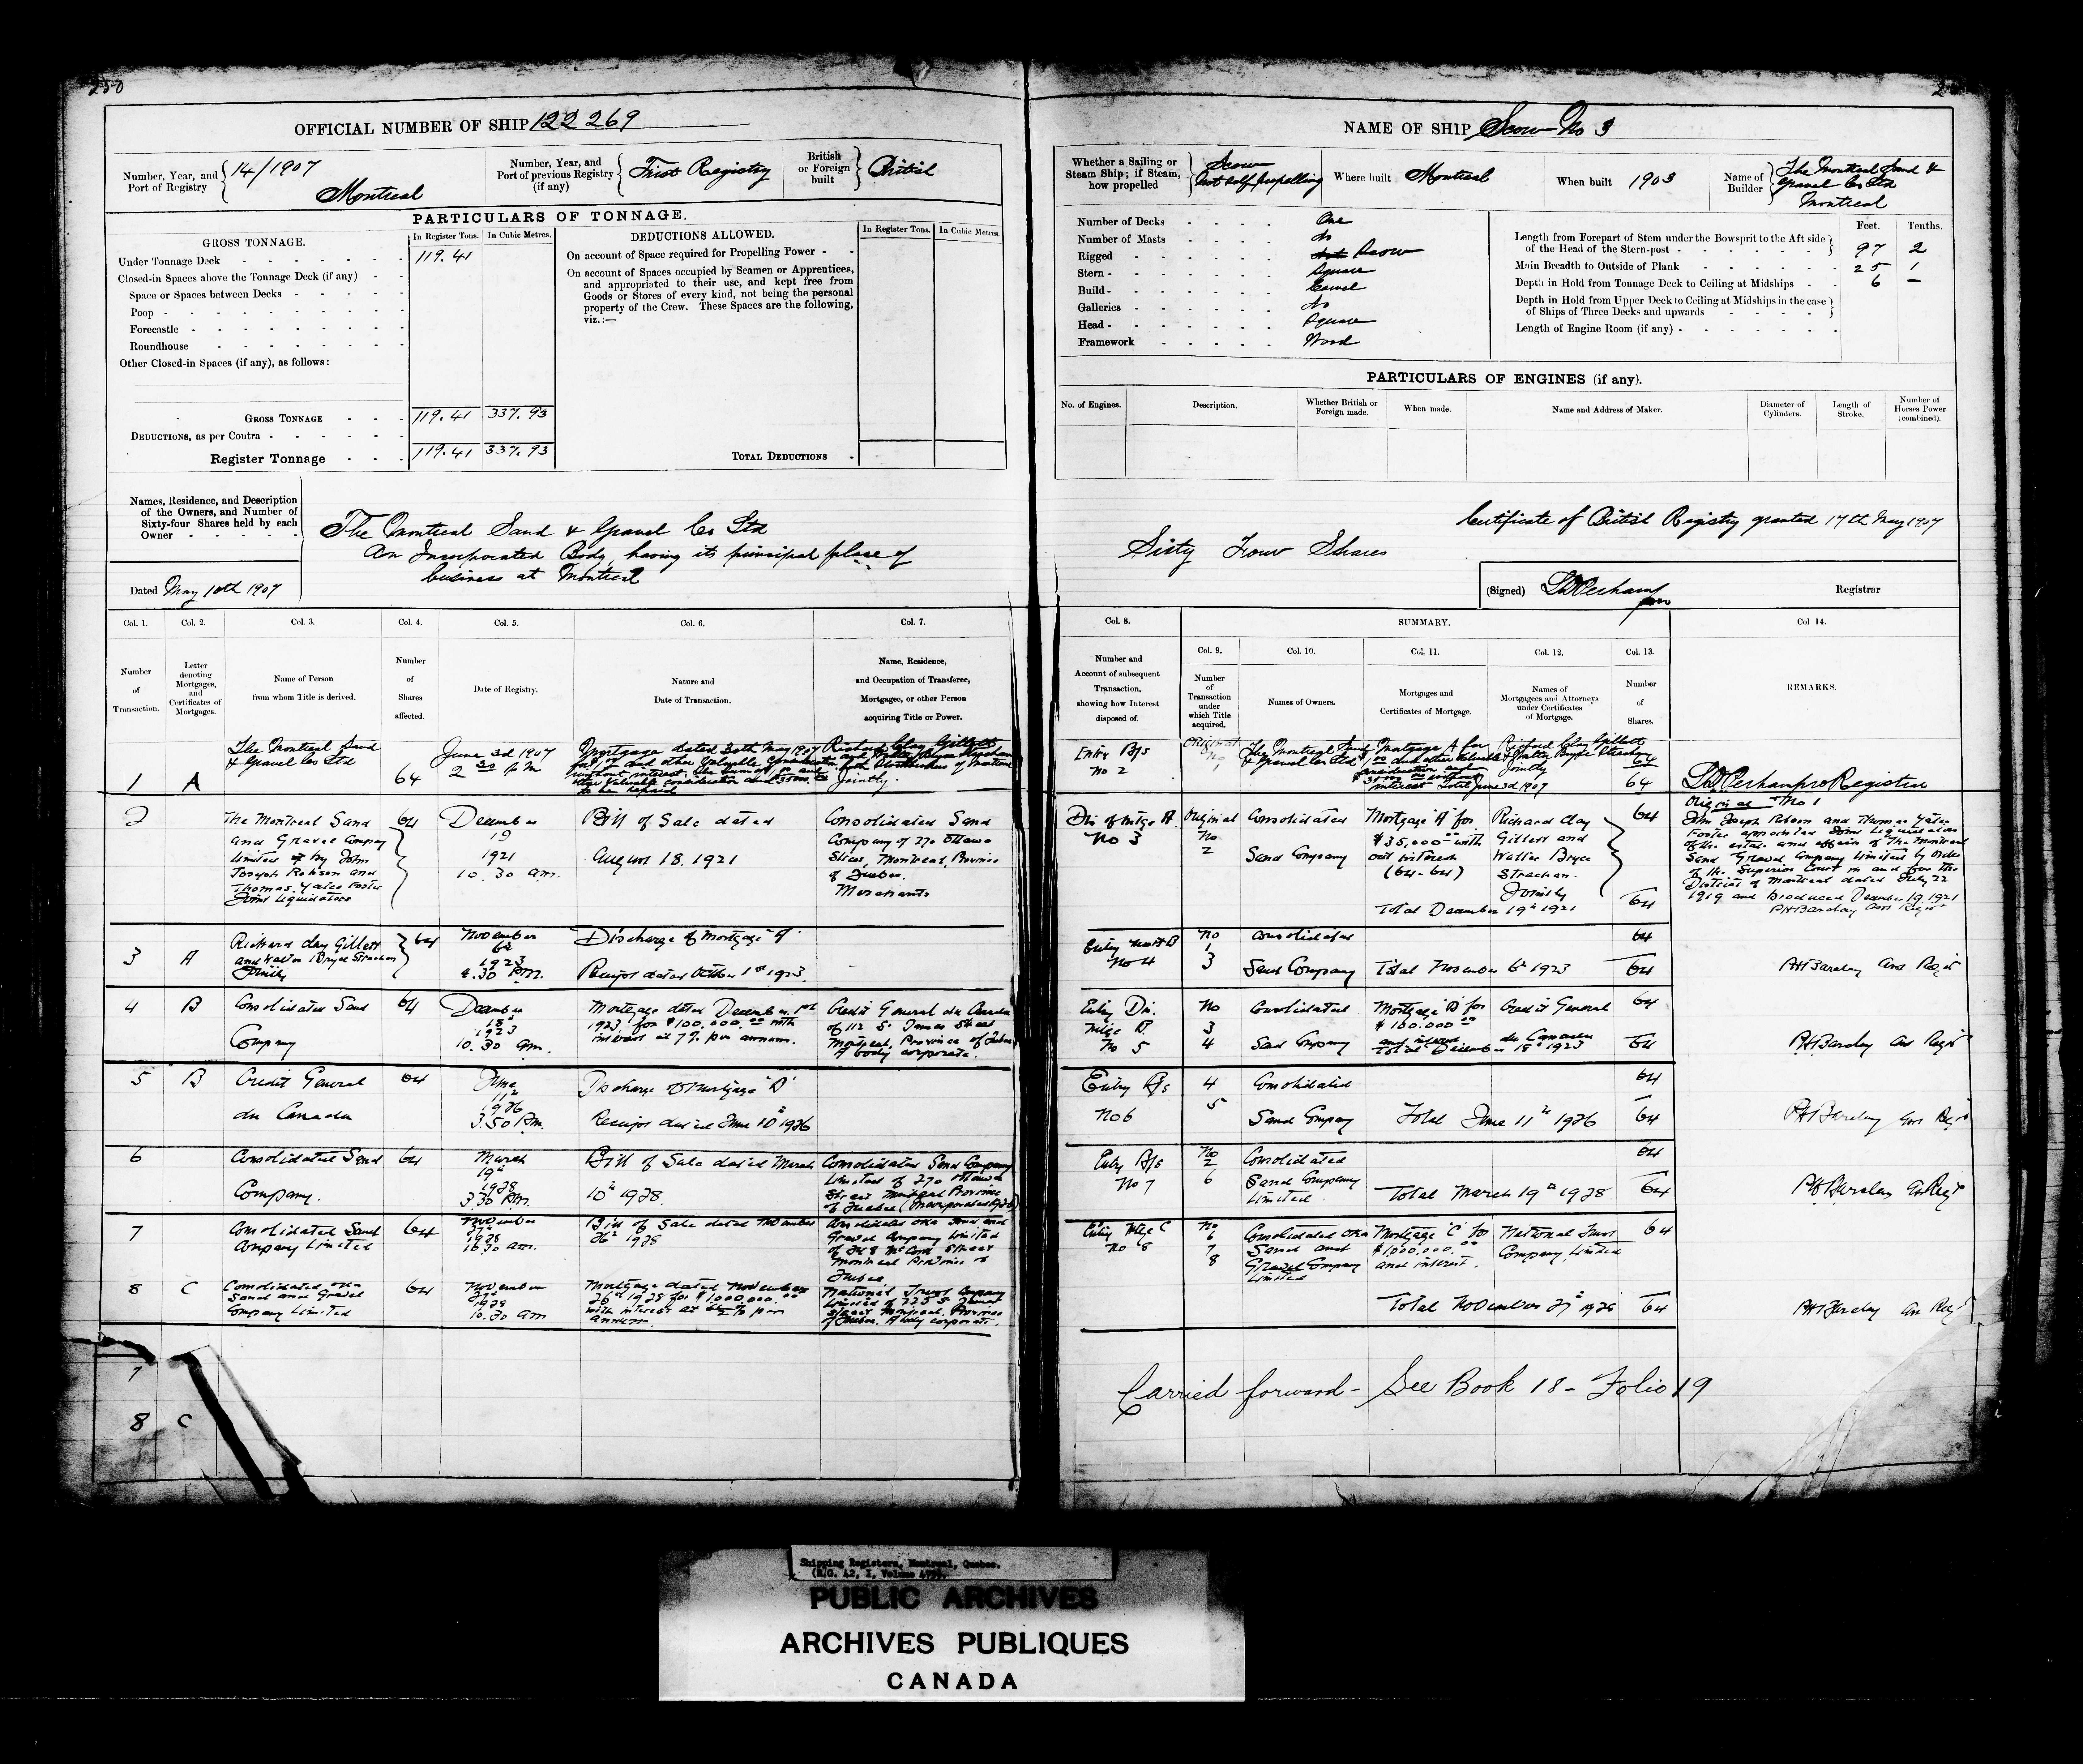 250
OFFICIAL NUMBER OF SHIP 122 269
Number, Year, and Port of Registry 14/1907 Montreal
Number, Year, and Port of previous Registry (if any) First Registry
British or Foreign built British
PARTICULARS OF TONNAGE.
GROSS TONNAGE. In Register Tons. In Cubic Metres.
Under Tonnage Deck 119.41
Closed-in Spaces above the Tonnage Deck (if any)
Space or Spaces between Decks
Poop
Forecastle
Roundhouse
Other Closed-in Spaces (if any), as follows:
GROSS TONNAGE 119.41 337.93
DEDUCTIONS, as per Contra
Register Tonnage 119.41 337.93
DEDUCTIONS ALLOWED. In Register Tons. In Cubic Metres.
On account of Space required for Propelling Power
On account of Spaces occupied by Seamen or Apprentices,
and appropriated to their use, and kept free from
Goods or Stores of every kind, not being the personal
property of the Crew. These Spaces are the following,
viz.:—
TOTAL DEDUCTIONS
Names, Residence, and Description
of the Owners, and Number of
Sixty-four Shares held by each
Owner
The Montreal Sand & Gravel Co Ltd
An Incorporated Body, having its principal place of
business at Montreal
Dated May 10th 1907
Col. 1. Col. 2. Col. 3. Col. 4. Col. 5. Col. 6. Col. 7.
Number of Transaction.
Letter denoting Mortgages, and Certificates of Mortgages.
Name of Person from whom Title is derived.
Number of Shares affected.
Date of Registry.
Nature and Date of Transaction.
Name, Residence, and Occupation of Transferee, Mortgagee, or other Person acquiring Title or Power.
1 A
The Montreal Sand
& Gravel Co Ltd
64
June 3d 1907
2 30 p m
Mortgage dated 30th May 1907
Richard Clay Gillett
Jointly
2
The Montreal Sand
and Gravel Company
Limited by John
Joseph Robson and
Thomas Yates Foster
Joint Liquidators
64
December
19
1921
10.30 am.
Bill of Sale dated
August 18. 1921
Consolidated Sand
Company of 270 Ottawa
Street, Montreal, Province
of Quebec.
Merchants
3 A
Richard Clay Gillett
and Walter Bryce Strachan
Jointly
64
November
6th
1923
4.30 P.M.
Discharge of Mortgage "A"
Receipt dated October 1st 1923
4 B
Consolidated Sand
Company
64
December
18
1923
10.30 am.
Mortgage dated December 1st
1923, for $100,000.00 with
interest at 7% per annum.
Credit General du Canada
of 112 St James Street
Montreal, Province of Quebec
A body corporate.
5 B
Credit General
du Canada
64
June
11th
1926
3.50 P.M.
Discharge of Mortgage "B"
Receipt dated June 10th 1926
6
Consolidated Sand
Company.
64
March
19th
1928
3.30 P.M.
Bill of Sale dated March
10th 1928.
Consolidated Sand Company
Limited of 270 Ottawa
Street Montreal Province
of Quebec
7
Consolidated Sand
Company Limited
64
November
27th
1928
10.30 am.
Bill of Sale dated November
26th 1928
Consolidated Oka Sand and
Gravel Company Limited
of 248 McCord Street
Montreal Province of
Quebec
8 C
Consolidated Oka
Sand and Gravel
Company Limited
64
November
27th
1928
10.30 am
Mortgage dated November
26th 1928 for $1,000,000.00
with interest at 6½% per
annum.
National Trust Company
Limited of 225 St James
Street Montreal, Province
of Quebec. A body corporate.
7
8 C
NAME OF SHIP Scow No 3
Whether a Sailing or Steam Ship; if Steam, how propelled Scow Not self propelling
Where built Montreal
When built 1903
Name of Builder The Montreal Sand & Gravel Co Ltd Montreal
Number of Decks One
Number of Masts No
Rigged Scow
Stern Square
Build Carvel
Galleries No
Head Square
Framework Wood
Feet. Tenths.
Length from Forepart of Stem under the Bowsprit to the Aft side
of the Head of the Stern-post 97 2
Main Breadth to Outside of Plank 25 1
Depth in Hold from Tonnage Deck to Ceiling at Midships 6 —
Depth in Hold from Upper Deck to Ceiling at Midships in the case
of Ships of Three Decks and upwards
Length of Engine Room (if any)
PARTICULARS OF ENGINES (if any).
No. of Engines. Description. Whether British or Foreign made. When made. Name and Address of Maker. Diameter of Cylinders. Length of Stroke. Number of Horses Power (combined).
Certificate of British Registry granted 17th May 1907
Sixty Four Shares
(Signed) Registrar
Col. 8. SUMMARY. Col 14.
Col. 9. Col. 10. Col. 11. Col. 12. Col. 13.
Number and Account of subsequent Transaction, showing how Interest disposed of.
Number of Transaction under which Title acquired.
Names of Owners.
Mortgages and Certificates of Mortgage.
Names of Mortgagees and Attorneys under Certificates of Mortgage.
Number of Shares.
REMARKS.
Entry B/S
No 2
Original
The Montreal Sand
& Gravel Co Ltd
Mortgage A for
Richard Clay Gillett
& Walter Bryce Strachan
Jointly
Total June 3d 1907
64
64
Dis of Mtge A.
No 3
Original
No
2
Consolidated
Sand Company
Mortgage "A" for
$35,000.00 with
out interest
(64-64)
Richard Clay
Gillett and
Walter Bryce
Strachan.
Jointly
64
Total December 19th 1921
64
Original No 1
John Joseph Robson and Thomas Yates
Foster appointed Joint Liquidators
of the estate and effects of The Montreal
Sand Gravel Company Limited by order
of the Superior Court in and for the
District of Montreal dated July 22
1919 and Produced December 19 1921
PH Barclay
No 4
No
1
3
Consolidated
Sand Company
Total November 6th 1923
64
64
PH Barclay
Entry Dis.
Mtge B.
No 5
No
3
4
Consolidated
Sand Company
Mortgage "B" for
$100.000.00
and interest
Credit General
du Canada
Total December 18th 1923
64
64
PH Barclay
Entry B/S
No 6
4
5
Consolidated
Sand Company
Total June 11th 1926
64
64
PH Barclay
Entry B/S
No 7
No
2
6
Consolidated
Sand Company
Limited
Total March 19th 1928
64
64
PH Barclay
Entry Mtge C
No 8
No
6
7
8
Consolidated Oka
Sand and
Gravel Company
Limited
Mortgage "C" for
$1,000,000.00
and interest.
National Trust
Company Limited
64
Total November 27th 1928
64
PH Barclay
Carried forward - See Book 18 - Folio 19
Shipping Registers, Montreal, Quebec.
PUBLIC ARCHIVES
ARCHIVES PUBLIQUES
CANADA